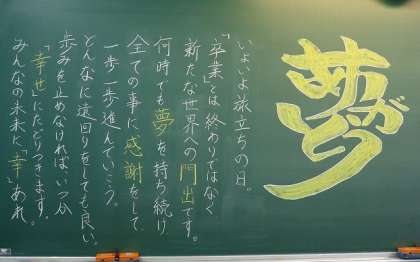 ありがとう
いよいよ旅立ちの日。
「卒業」とは終わりではなく
新たな世界への門出です。
何時でも夢を持ち続け
全ての事に感謝をして、
一歩一歩進んでいこう。
どんなに遠回りをしても良い。
歩みを止めなければ、いつか
「幸せ」にたどりつきます。
みんなの未来に「幸」あれ。